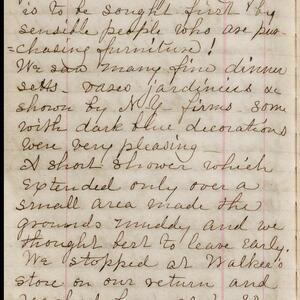 is to be sought first by
sensible people who are pur-
chasing furniture!
We saw many fine dinner
sets - vases jardinieres as
shown by N.Y. firms some
with dark blue decorations
were very pleasing
A short shower which
extended only over a
small area made the
grounds muddy and we
thought best to leave early.
We stopped at Walker's
store on our return and